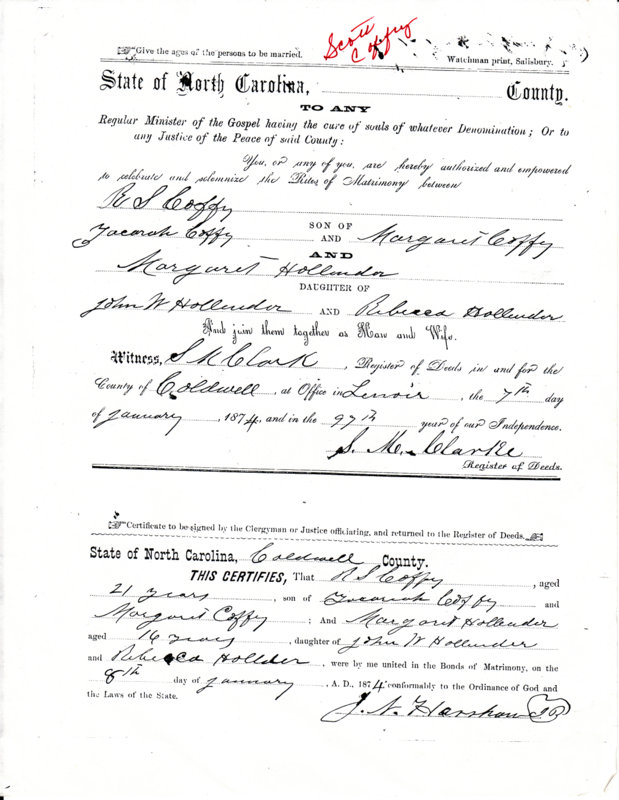 Scott
Coffey
Give the ages of the persons to be married.
Watchman print, Salisbury.
State of North Carolina, County.
TO ANY
Regular Minister of the Gospel having the cure of souls of whatever Denomination; Or to
any Justice of the Peace of said County:
You, or any of you, are hereby authorized and empowered
to celebrate and solemnize the Rites of Matrimony between
R S Coffy
SON OF
Zacariah Coffy AND Margaret Coffy
AND
Margaret Hollender
DAUGHTER OF
John W Hollender AND Rebecca Hollender
And join them together as Man and Wife.
Witness, S M Clark, Register of Deeds in and for the
County of Coldwell, at Office in Lenoir, the 7th day
of January, 1874, and in the 97th year of our Independence.
S. M. Clarke
Register of Deeds.
Certificate to be signed by the Clergyman or Justice officiating, and returned to the Register of Deeds.
State of North Carolina, Coldwell County.
THIS CERTIFIES, That R S Coffy, aged
21 years, son of Zacariah Coffy and
Margaret Coffy; And Margaret Hollender
aged 16 years, daughter of John W Hollender
and Rebecca Hollder, were by me united in the Bonds of Matrimony, on the
8th day of January, A. D., 1874 conformably to the Ordinance of God and
the Laws of the State.
J. N. Harshaw JP